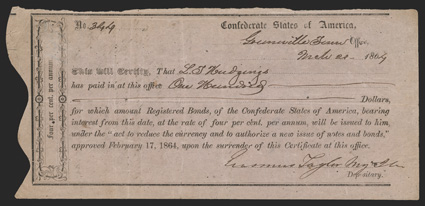 No. 344
Confederate States of America,
Greenville Tenn Office,
March 20 1864
This Will Certify, That L. T. Hudgings
has paid in at this office One Hundred
Dollars,
for which amount Registered Bonds, of the Confederate States of America, bearing
interest from this date, at the rate of four per cent. per annum, will be issued to him,
under the "act to reduce the currency and to authorize a new issue of notes and bonds,"
approved February 17, 1864, upon the surrender of this Certificate at this office.
Erasmus Taylor Maj &
Depositary.
four per cent. per annum